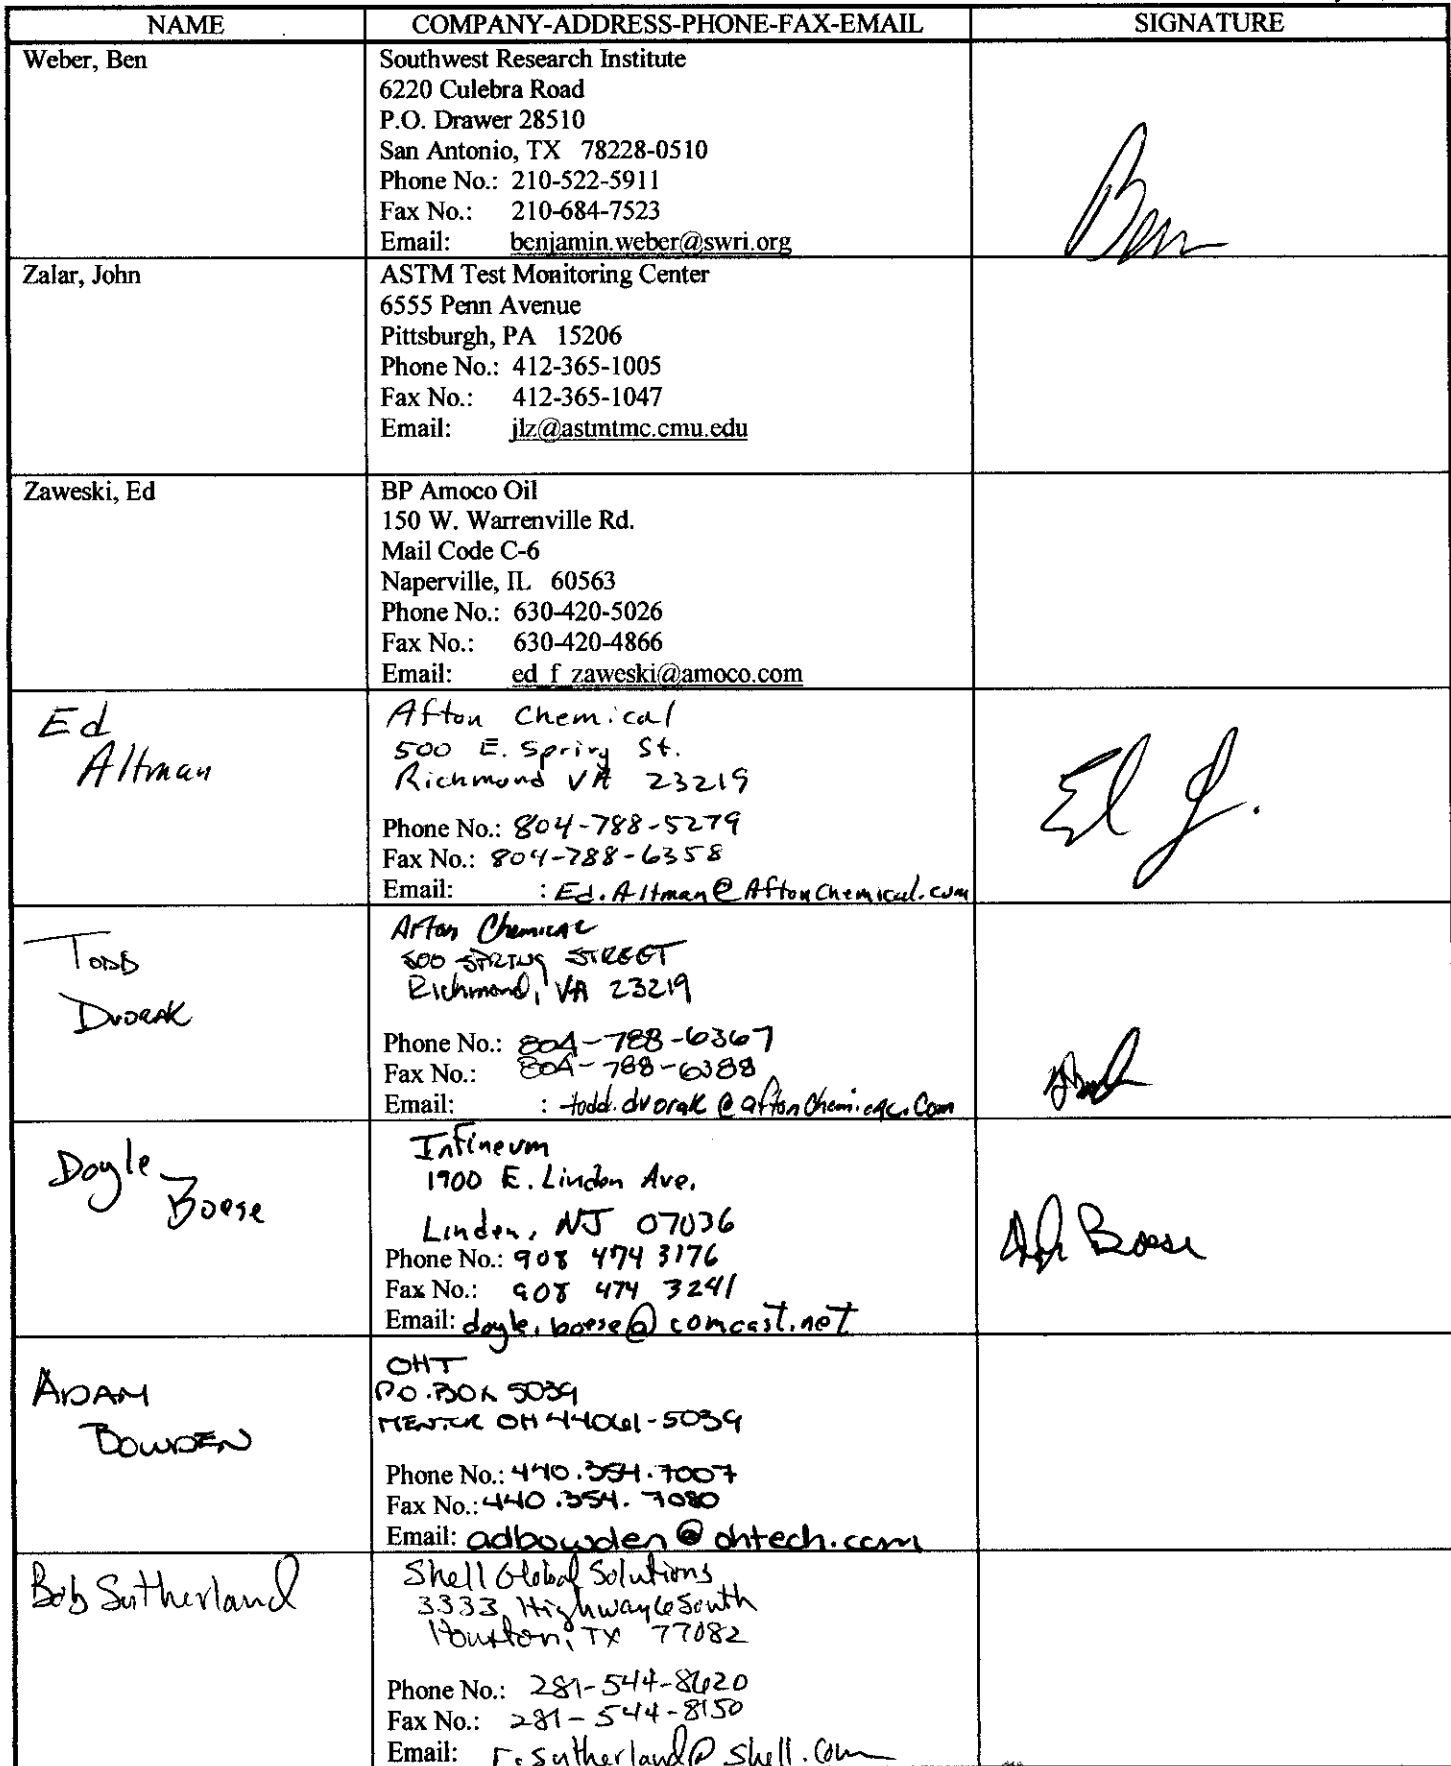 NAME COMPANY-ADDRESS-PHONE-FAX-EMAIL SIGNATURE
Weber, Ben
Southwest Research Institute
6220 Culebra Road
P.O. Drawer 28510
San Antonio, TX 78228-0510
Phone No.: 210-522-5911
Fax No.: 210-684-7523
Email: benjamin.weber@swri.org
Ben
Zalar, John
ASTM Test Monitoring Center
6555 Penn Avenue
Pittsburgh, PA 15206
Phone No.: 412-365-1005
Fax No.: 412-365-1047
Email: jlz@astmtmc.cmu.edu
Zaweski, Ed
BP Amoco Oil
150 W. Warrenville Rd.
Mail Code C-6
Naperville, IL 60563
Phone No.: 630-420-5026
Fax No.: 630-420-4866
Email: ed_f_zaweski@amoco.com
Ed
Altman
Afton Chemical
500 E. Spring St.
Richmond VA 23219
Phone No.: 804-788-5279
Fax No.: 804-788-6358
Email: : Ed.Altman@AftonChemical.com
TODD
DVORAK
Afton Chemical
500 SPRING STREET
Richmond, VA 23219
Phone No.: 804-788-6367
Fax No.: 804-788-6388
Email: : todd.dvorak@aftonchemical.com
Doyle
Boese
Infineum
1900 E. Linden Ave.
Linden, NJ 07036
Phone No.: 908 474 3176
Fax No.: 908 474 3241
Email: doyle.boese@comcast.net
Boese
ADAM
BOWDEN
OHT
PO.BOX 5039
MENTOR OH 44061-5039
Phone No.: 440.354.7007
Fax No.: 440.354.7080
Email: adbowden@ohtech.com
Bob Sutherland
Shell Global Solutions
3333 Highway 6 South
Houston, TX 77082
Phone No.: 281-544-8620
Fax No.: 281-544-8150
Email: r.sutherland@shell.com